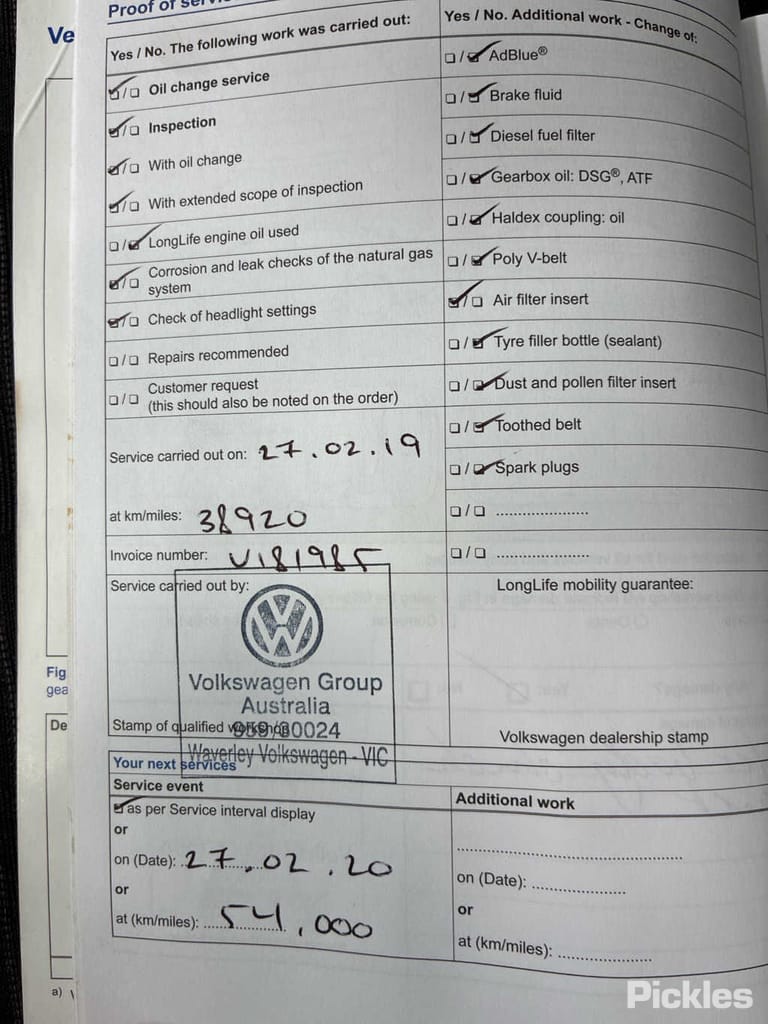 Ve
Proof of
Yes / No. The following work was carried out:
☑/☐ Oil change service
☑/☐ Inspection
☑/☐ With oil change
☑/☐ With extended scope of inspection
☐/☑ LongLife engine oil used
☑/☐ Corrosion and leak checks of the natural gas
system
☑/☐ Check of headlight settings
☐/☐ Repairs recommended
☐/☐ Customer request
(this should also be noted on the order)
Service carried out on: 27.02.19
at km/miles: 38920
Invoice number: V181985
Service carried out by:
Volkswagen Group
Australia
Stamp of qualified
Waverley Volkswagen - VIC
Yes / No. Additional work - Change of:
☐/☑ AdBlue®
☐/☑ Brake fluid
☐/☑ Diesel fuel filter
☐/☑ Gearbox oil: DSG®, ATF
☐/☑ Haldex coupling: oil
☐/☑ Poly V-belt
☑/☐ Air filter insert
☐/☑ Tyre filler bottle (sealant)
☐/☑ Dust and pollen filter insert
☐/☑ Toothed belt
☐/☑ Spark plugs
☐/☐ .....................
☐/☐ .....................
LongLife mobility guarantee:
Volkswagen dealership stamp
Your next services
Service event
☑ as per Service interval display
or
on (Date): 27.02.20
or
at (km/miles): 54,000
Additional work
on (Date): .....................
or
at (km/miles): .....................
Fig
gea
De
a)
Pickles